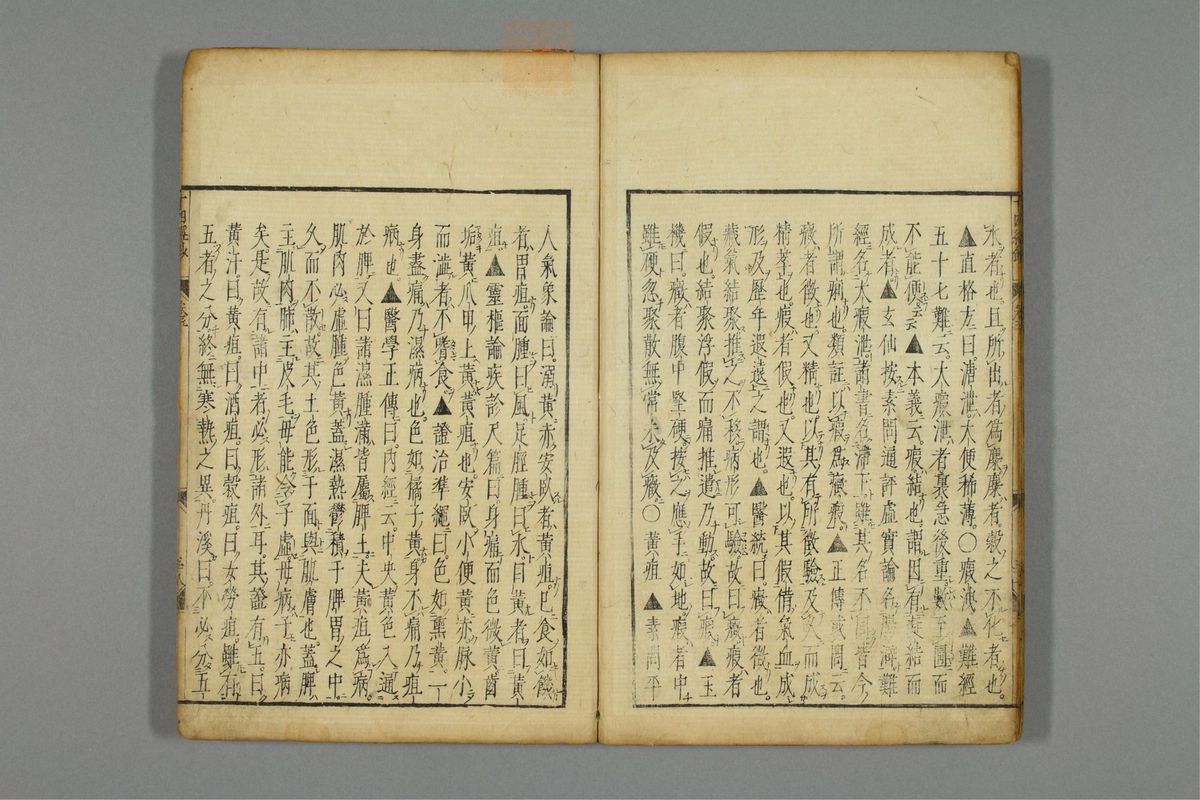 水者也且所出者爲麋麋者穀之不化者也
▲直格方曰溏泄大便稀薄○瘕泄▲難經
五十七難云大瘕泄者裏急後重數至圊而
不能便云云▲本義云瘕結也謂因有凝結而
成者▲玄仙按素問通評虛實論名腸澼難
經名大瘕泄諸書名滯下雖其名不同皆今
所謂痢也類註以瘕爲癥瘕▲正傳或問云
癥者徵也又精也以其有所徵驗及久而成
精萃也瘕者假也又遐也以其假借氣血成
形及歷年遐遠之謂也▲醫統曰癥者徵也
藏氣結聚推之不移病形可驗故曰癥瘕者
假也結聚浮假而痛推遣乃動故曰瘕▲玉
機曰癥者腹中堅硬按之應手如地瘕者中
雖硬忽聚散無常未及癥○黃疸▲素問平
人氣象論曰溺黃赤安臥者黃疸已食如饑
者胃疸面腫曰風足脛腫曰水目黃者曰黃
疸▲靈樞論疾診尺篇曰身痛而色微黃齒
垢黃爪甲上黃黃疸也安臥小便黃赤脉小
而濇者不嗜食▲證治準繩曰色如熏黃一
身盡痛乃濕病也色如橘子黃身不痛乃疸
病也▲醫學正傳曰內經云中央黃色入通
於脾又曰諸濕腫滿皆屬脾土夫黃疸爲病
肌肉必虛腫色黃蓋濕熱鬱積于脾胃之中
久而不散故其土色形于面與肌膚也蓋脾
主肌肉肺主皮毛母能令子虛母病子亦病
矣是故有諸中者必形諸外耳其證有五曰
黃汗曰黃疸曰酒疸曰穀疸曰女勞疸雖有
五者之分終無寒熱之異丹溪曰不必分五